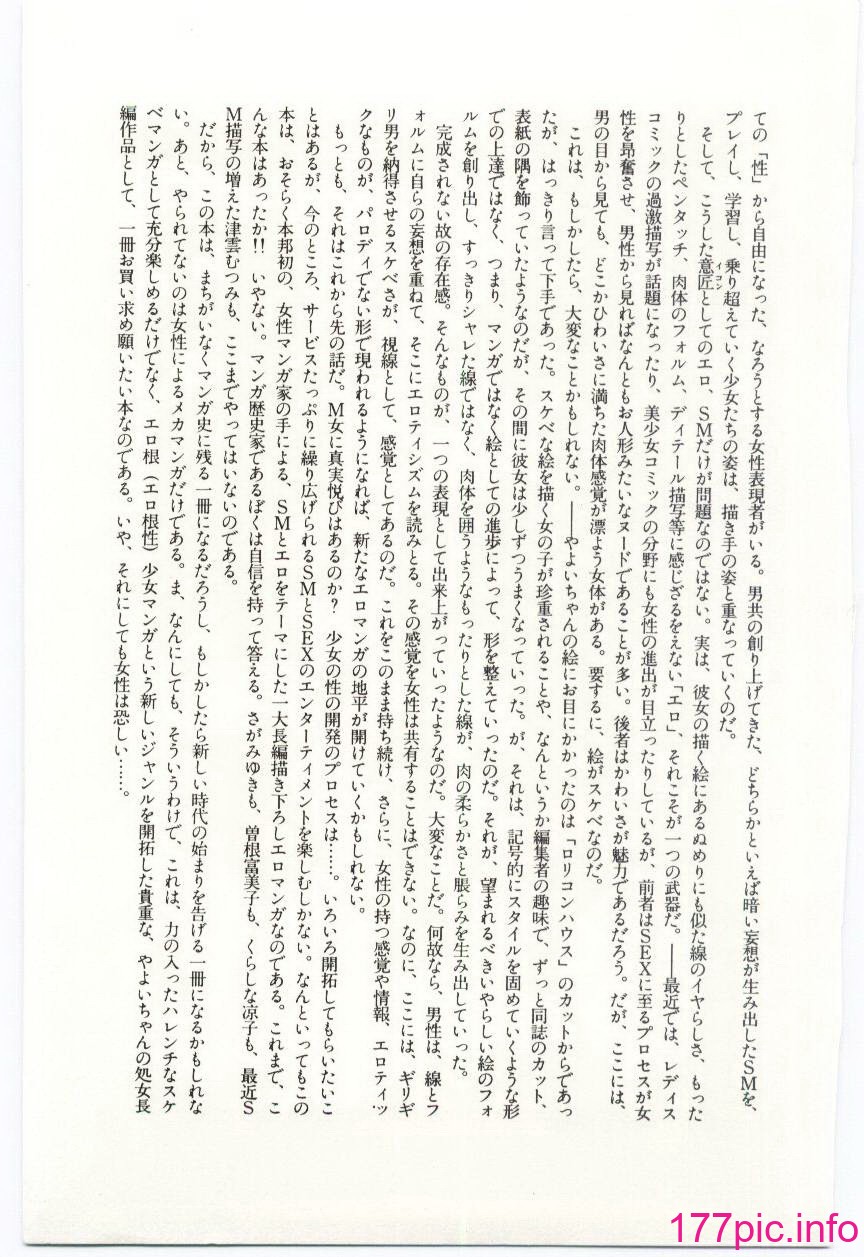 ての「性」から自由になった、なろうとする女性表現者がいる。男共の創り上げてきた、どちらかといえば暗い妄想が生み出したSMを、
プレイし、学習し、乗り超えていく少女たちの姿は、描き手の姿と重なっていくのだ。
そして、こうした意匠イコンとしてのエロ、SMだけが問題なのではない。実は、彼女の描く絵にあるぬめりにも似た線のイヤらしさ、もった
りとしたペンタッチ、肉体のフォルム、ディテール描写等に感じざるをえない「エロ」、それこそが一つの武器だ。——最近では、レディス
コミックの過激描写が話題になったり、美少女コミックの分野にも女性の進出が目立ったりしているが、前者はSEXに至るプロセスが女
性を昂奮させ、男性から見ればなんともお人形みたいなヌードであることが多い。後者はかわいさが魅力であるだろう。だが、ここには、
男の目から見ても、どこかひわいさに満ちた肉体感覚が漂よう女体がある。要するに、絵がスケベなのだ。
これは、もしかしたら、大変なことかもしれない。——やよいちゃんの絵にお目にかかったのは「ロリコンハウス」のカットからであっ
たが、はっきり言って下手であった。スケベな絵を描く女の子が珍重されることや、なんというか編集者の趣味で、ずっと同誌のカット、
表紙の隅を飾っていたようなのだが、その間に彼女は少しずつうまくなっていった。が、それは、記号的にスタイルを固めていくような形
での上達ではなく、つまり、マンガではなく絵としての進歩によって、形を整えていったのだ。それが、望まれるべきいやらしい絵のフォ
ルムを創り出し、すっきりシャレた線ではなく、肉体を囲うようなもったりとした線が、肉の柔らかさと脹らみを生み出していった。
完成されない故の存在感。そんなものが、一つの表現として出来上がっていったようなのだ。大変なことだ。何故なら、男性は、線とフ
ォルムに自らの妄想を重ねて、そこにエロティシズムを読みとる。その感覚を女性は共有することはできない。なのに、ここには、ギリギ
リ男を納得させるスケベさが、視線として、感覚としてあるのだ。これをこのまま持ち続け、さらに、女性の持つ感覚や情報、エロティッ
クなものが、パロディでない形で現われるようになれば、新たなエロマンガの地平が開けていくかもしれない。
もっとも、それはこれから先の話だ。M女に真実悦びはあるのか?　少女の性の開発のプロセスは……。いろいろ開拓してもらいたいこ
とはあるが、今のところ、サービスたっぷりに繰り広げられるSMとSEXのエンターティメントを楽しむしかない。なんといってもこの
本は、おそらく本邦初の、女性マンガ家の手による、SMとエロをテーマにした一大長編描き下ろしエロマンガなのである。これまで、こ
んな本はあったか!!　いやない。マンガ歴史家であるぼくは自信を持って答える。さがみゆきも、曽根富美子も、くらしな凉子も、最近S
M描写の増えた津雲むつみも、ここまでやってはいないのである。
だから、この本は、まちがいなくマンガ史に残る一冊になるだろうし、もしかしたら新しい時代の始まりを告げる一冊になるかもしれな
い。あと、やられてないのは女性によるメカマンガだけである。ま、なんにしても、そういうわけで、これは、力の入ったハレンチなスケ
ベマンガとして充分楽しめるだけでなく、エロ根（エロ根性）少女マンガという新しいジャンルを開拓した貴重な、やよいちゃんの処女長
編作品として、一冊お買い求め願いたい本なのである。いや、それにしても女性は恐しい……。
177pic.info